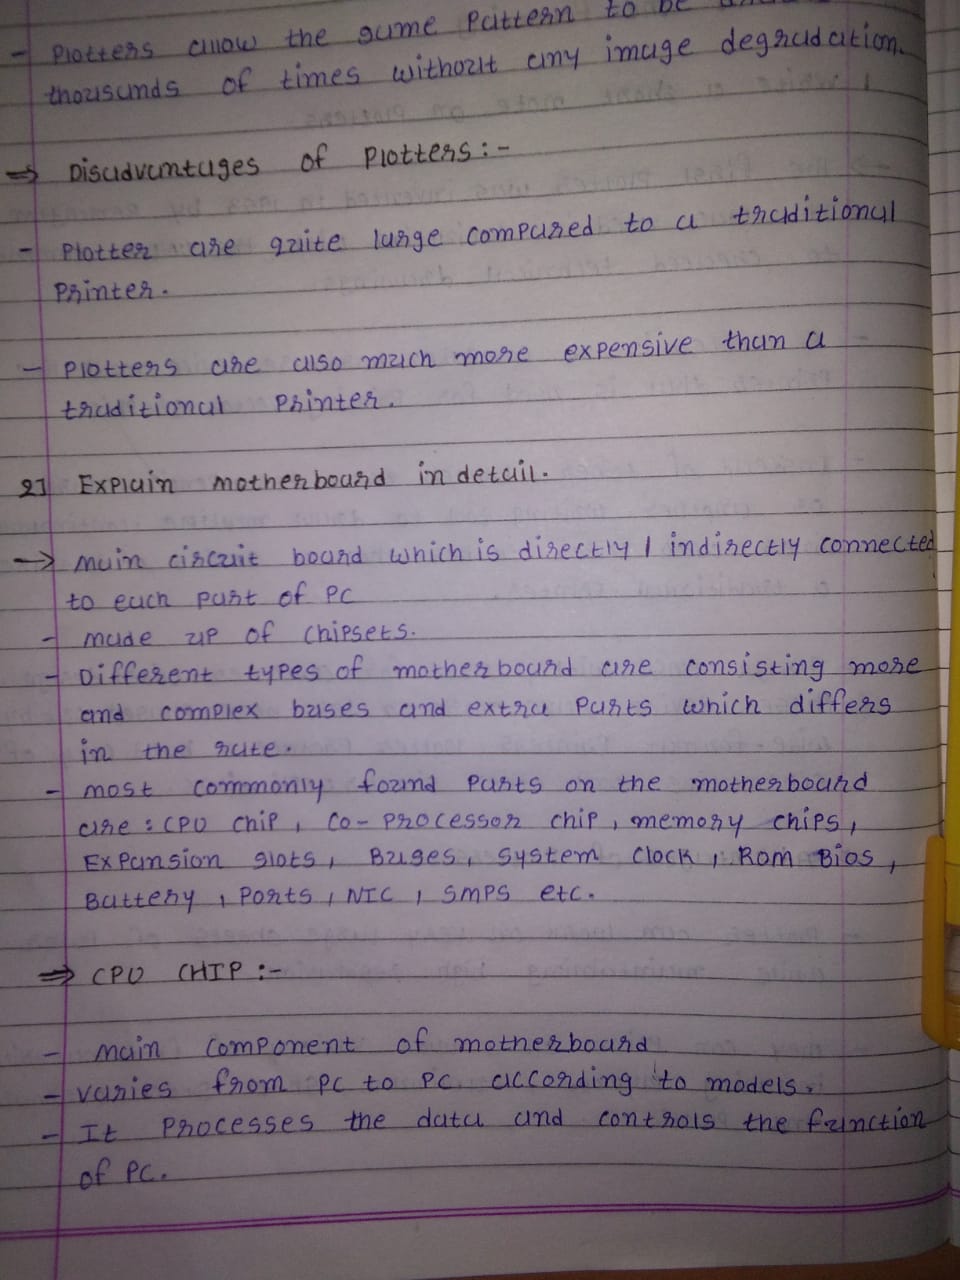 - Plotters allow the same Pattern to be
thousands of times without any image degradation.
⇒ Disadvantages of Plotters :-
- Plotter are quite large compared to a traditional
Printer.
- Plotters are also much more expensive than a
traditional Printer.
2] Explain motherboard in detail.
→ main circuit board which is directly / indirectly connected
to each part of PC
- made up of chipsets.
- Different types of motherboard are consisting more
and complex buses and extra Parts which differs
in the rate.
- most commonly found Parts on the motherboard
are : CPU chip, Co-Processor chip, memory chips,
Expansion slots, Buses, System Clock, Rom Bios,
Battery, Ports, NIC, SMPS etc.
⇒ CPU CHIP :-
- main component of motherboard
- varies from PC to PC according to models.
- It Processes the data and controls the function
of PC.